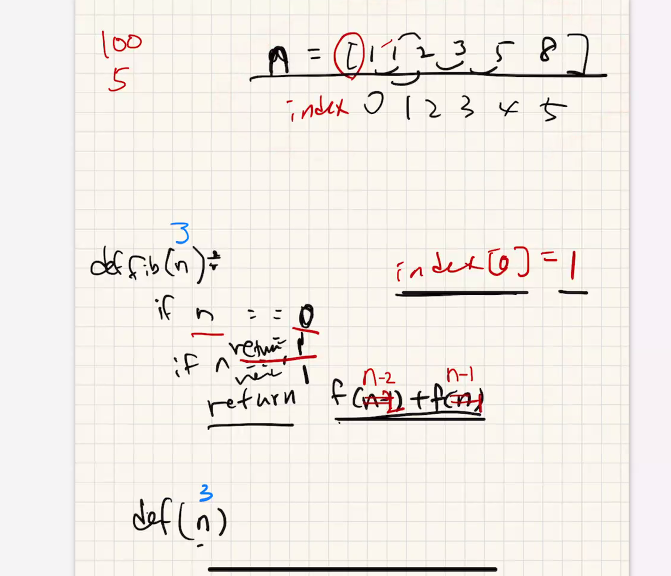 100
5
n = [ 1 1 2 3 5 8 ]
index 0 1 2 3 4 5
3
def fib(n):
index[0] = 1
if n == 0
return 1
if n
1
n-2 n-1
return f( ) + f( )
3
def(n)